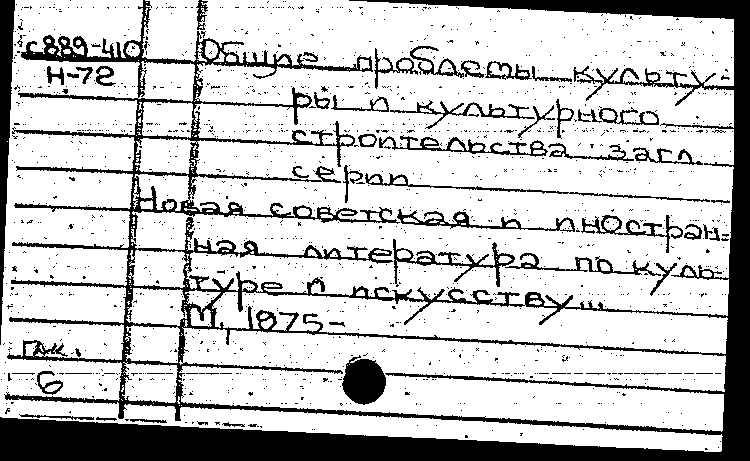 с889-410
Н-72
Общие проблемы культу-
ры и культурного
строительства : загл.
серии
Новая советская и иностран-
ная литература по куль-
туре и искусству...
М., 1975-
ГАК.
6